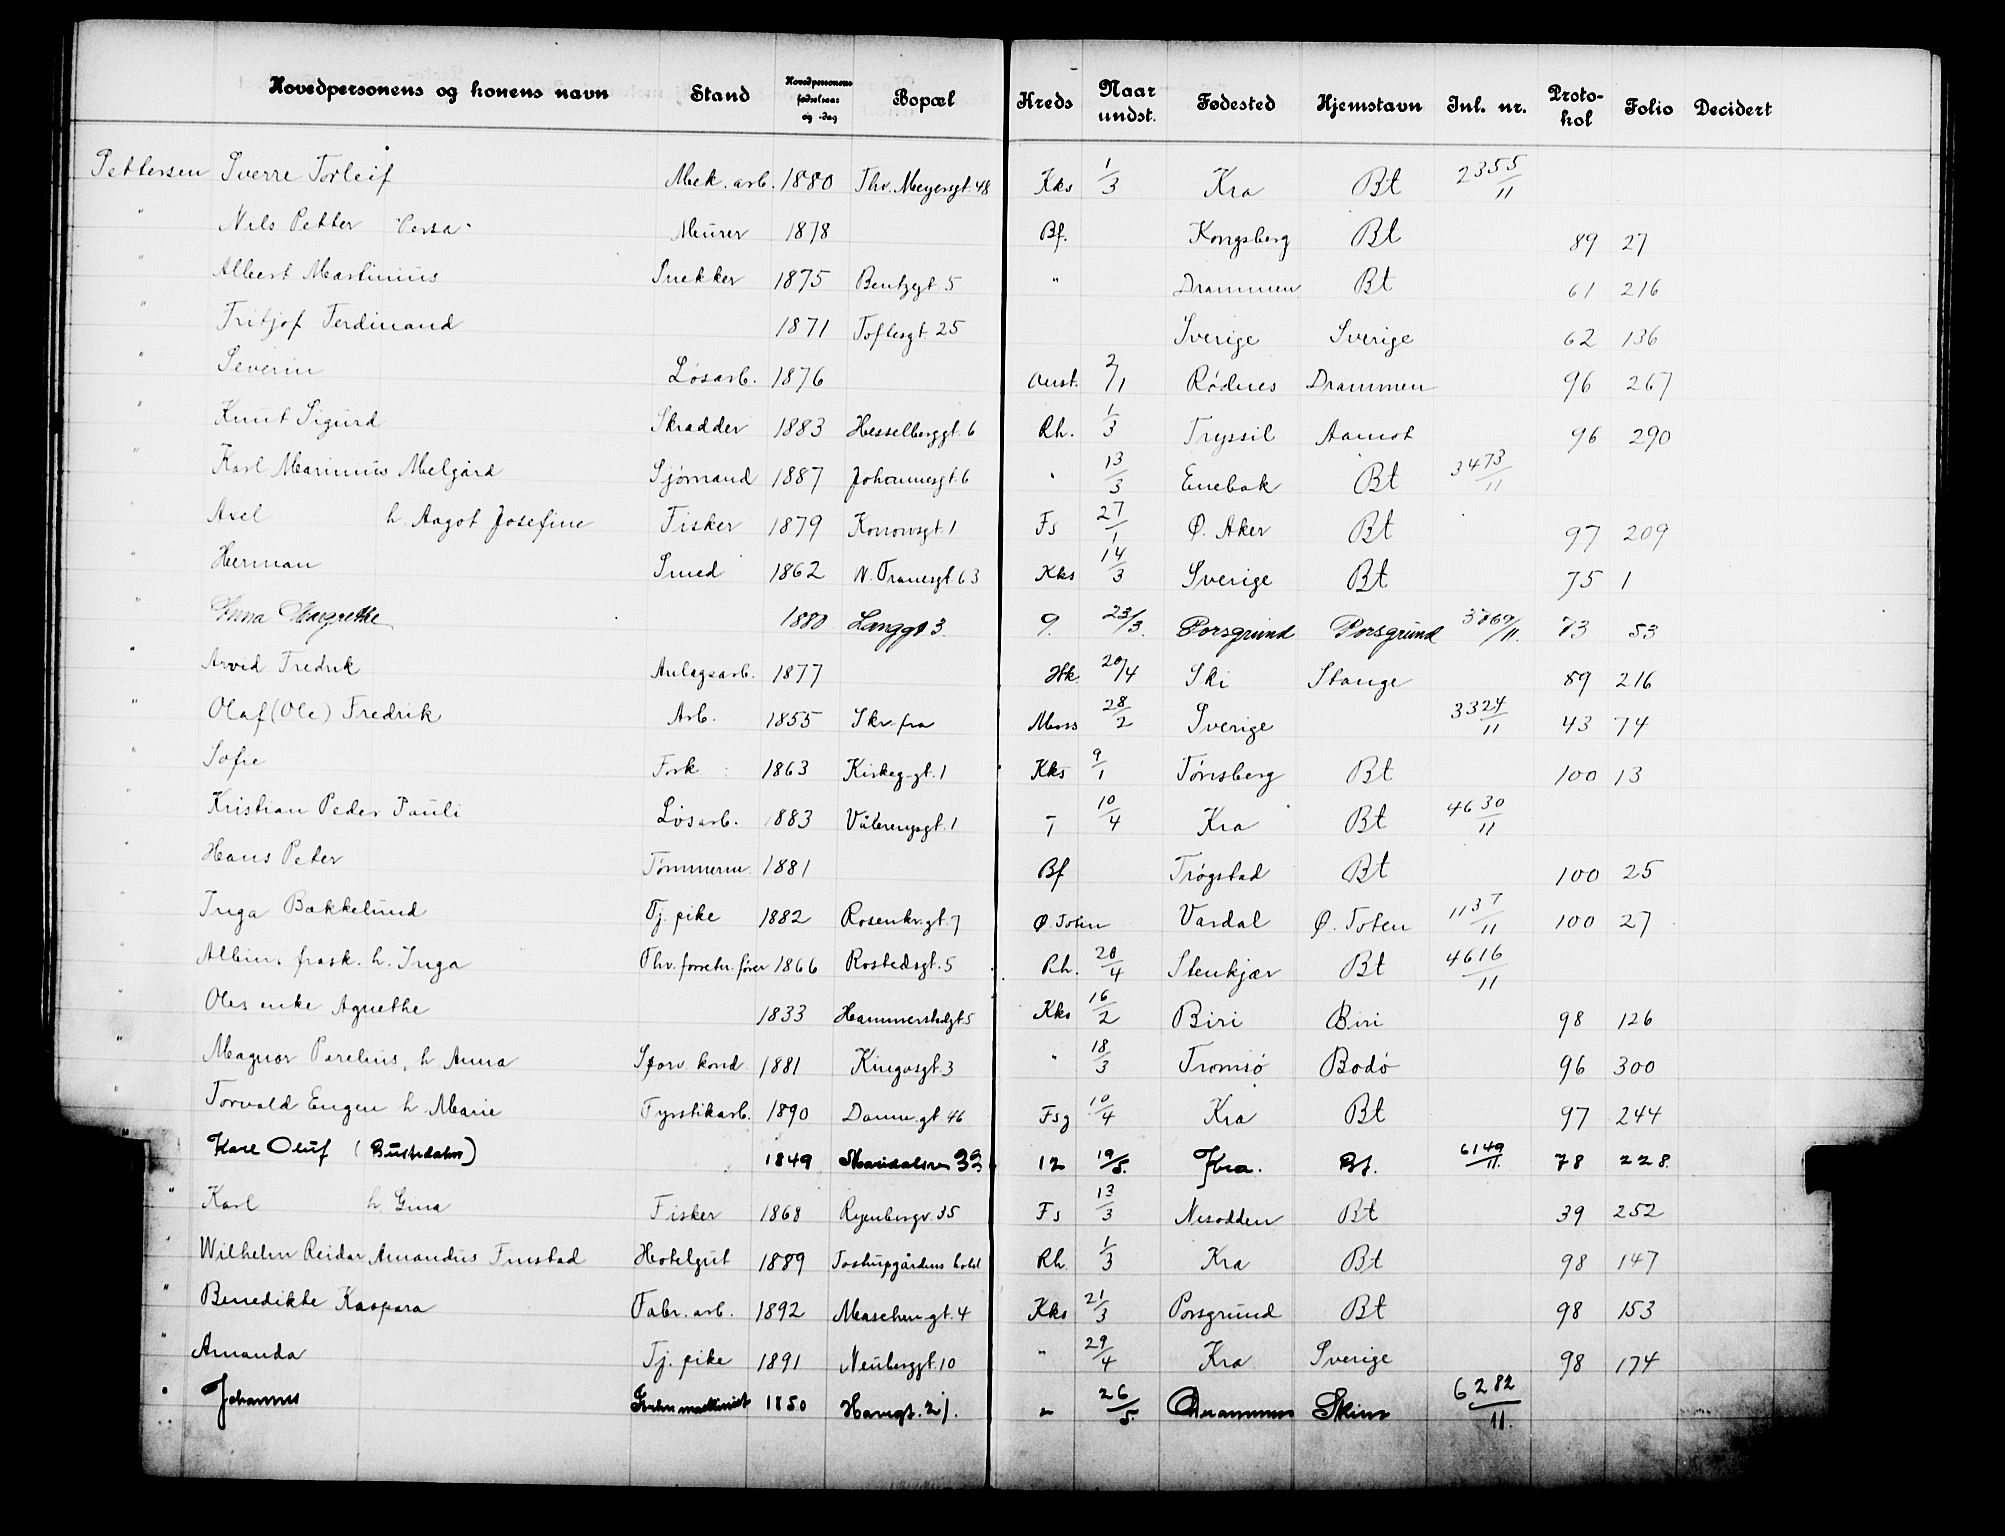 Hovedpersonens og konens navn Stand Hovedpersonens fødselsaar og -dag Bopæl Kreds Naar undst. Fødested Hjemstavn Inl. nr. Protokol Folio Decidert
Pettersen Sverre Torleif Mek. arb. 1880 Thv. Meyersgt. 48 Kks 1/3 Kra Bt 2355/11
" Nils Petter Murer 1878 Bf. Kongsberg Bt 89 27
" Albert Martinius Snekker 1875 Bentzegt. 5 " Drammen Bt 61 216
" Fritjof Ferdinand 1871 Toftesgt. 25 Sverige Sverige 62 136
" Severin Løsarb. 1876 2/1 Rødnes Drammen 96 267
" Knut Sigurd Skradder 1883 Hesselberggt. 6 Rh. 1/3 Tryssil Aamot 96 290
" Karl Marinius Melgård Sjømand 1887 Johannesgt. 6 " 13/3 Enebak Bt 3473/11
" Axel h. Aagot Josefine Fisker 1879 Konowsgt. 1 Fs 27/1 Ø. Aker Bt 97 209
" Herman Smed 1862 N. Tranesgt. 63 Kks 14/3 Sverige Bt 75 1
" Anna Margrethe 1880 Langgt 3. 9. 23/3. Porsgrund Porsgrund 73 53
" Arvid Fredrik Anlegsarb. 1877 Hk. 20/4 Ski Stange 89 216
" Olaf (Ole) Fredrik Arb. 1855 Skr. fra Moss 28/2 Sverige 3324/11 43 74
" Sofie Fork 1863 Kirkeg-gt. 1 Kks 9/1 Tønsberg Bt 100 13
" Kristian Peder Pauli Løsarb. 1883 Vålerengsgt. 1 T 10/4 Kra Bt 4630/11
" Hans Peter Tømmerm. 1881 Bf Trøgstad Bt 100 25
" Inga Bakkelund Tj. pike 1882 Rosenkr. gt. 7 Ø. Toten Vardal Ø. Toten 1137/11 100 27
" Albin, frask. h. Inga Thv. forretn. fører 1866 Rostedsgt. 5 Rh. 20/4 Stenkjær Bt 4616/11
" Oles enke Agnethe 1833 Hammersborgt. 5 Kks 16/2 Biri Biri 98 126
" Magnor Parelius, h Anna Sporv. kond 1881 Kingosgt. 3 " 18/3 Tromsø Bodø 96 300
" Torvald Eugen h Marie Fyrstikarb. 1890 Danm. gt. 46 Fsg 10/4 Kra Bt 97 244
" Karl Oluf 1849 Maridalsvn 33 12 19/5. Kra. Bt. 6149/11. 78 228.
" Karl h Gina Fisker 1868 Ryenbergv. 35 Fs 13/3 Nesodden Bt 39 252
" Wilhelm Reidar Amandus Finstad Hotelgut 1889 Tostrupgårdens hotel Rh. 1/3 Kra Bt 98 147
" Benedikte Kaspara Fabr. arb. 1892 Maschin-gt. 4 Kks 21/3 Porsgrund Bt 98 153
" Amanda Tj. pike 1891 Neuberggt. 10 " 29/4 Kra Sverige 98 174
" Johannes 1850 Havegt. 21. " 26/5 Drammen Skien 6282/11.